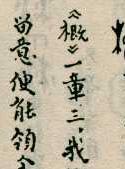 《概》一章三,我
留意使能領